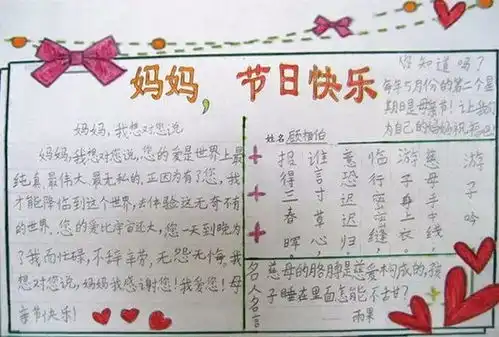 妈妈，节日快乐
你知道吗？
每年5月份的第二个星
期日是母亲节！让我们
为自己的妈妈祝福吧
妈妈，我想对您说
妈妈，我想对您说，您的爱是世界上最
纯真、最伟大、最无私的，正因为有了您，我
才能降临到这个世界，去体验这无奇不有
的世界。您的爱比宇宙还大，您一天到晚为
了我而忙碌，不辞辛劳，无怨无悔。我
想对您说，妈妈我感谢您！我爱您！母
亲节快乐！
姓名
游子吟
慈母手中线，
游子身上衣。
临行密密缝，
意恐迟迟归。
谁言寸草心，
报得三春晖。
名人名言
慈母的胳膊是慈爱构成的，孩
子睡在里面怎能不甜？
雨果